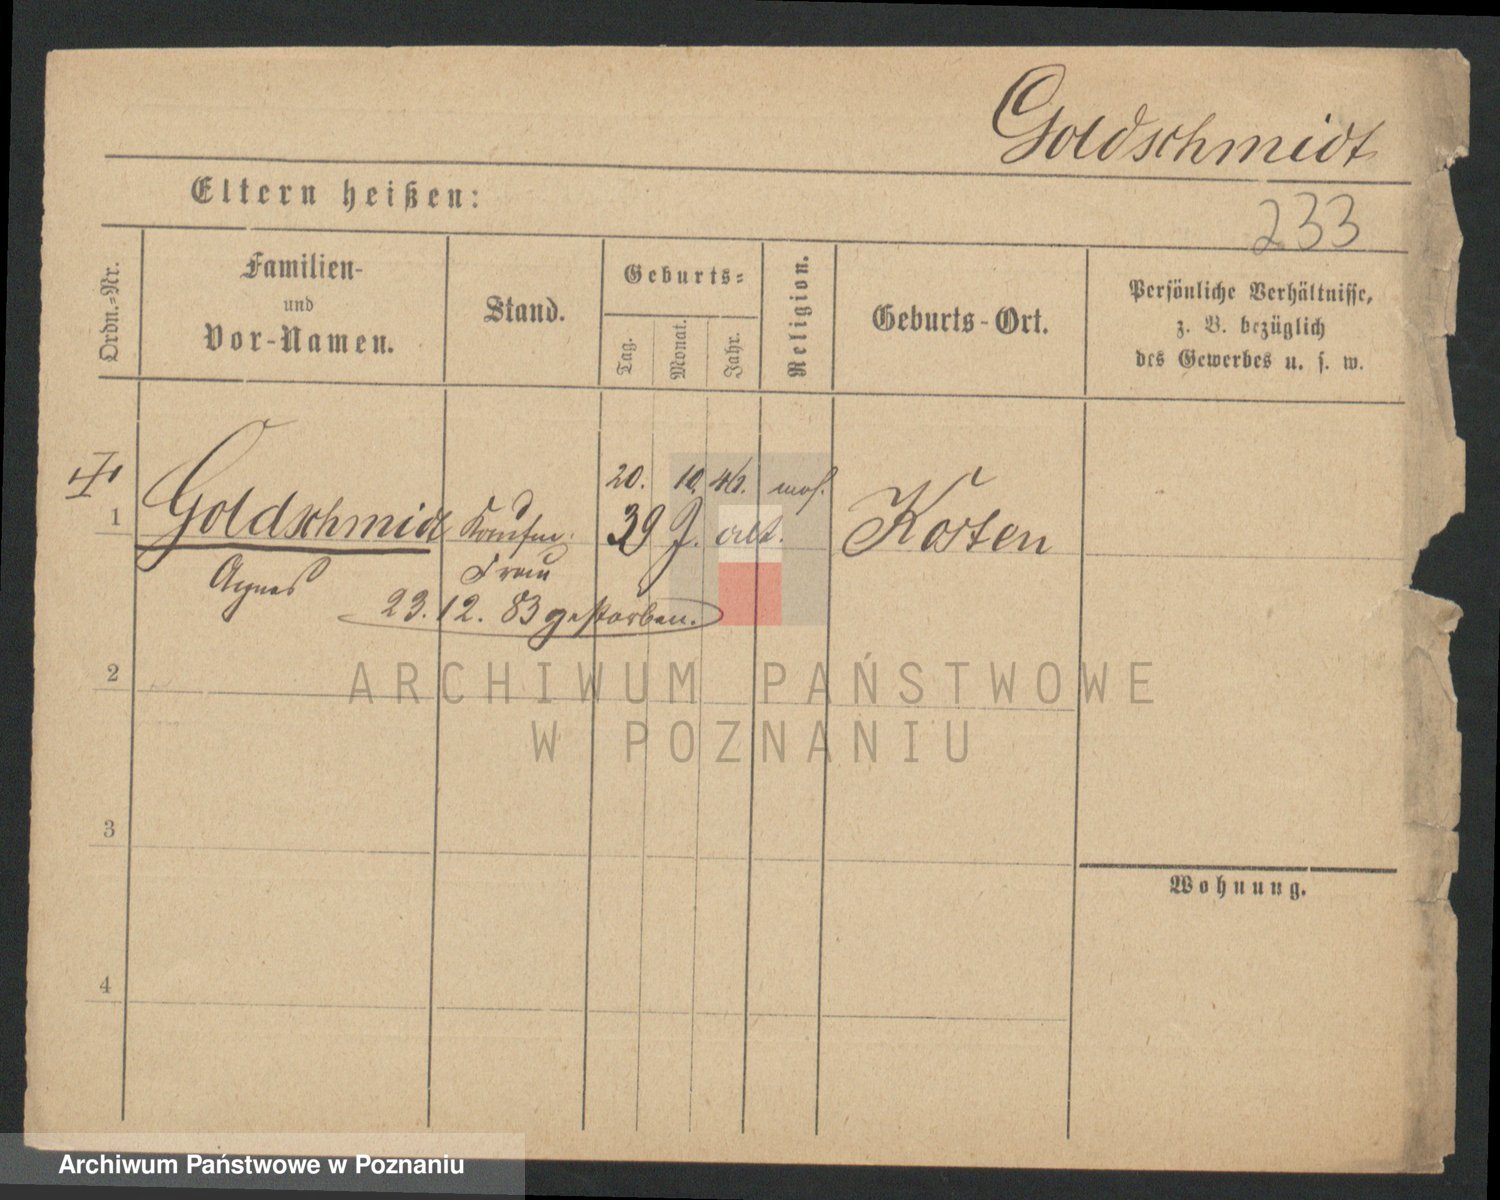 Goldschmidt
Eltern heißen:
233
Ordn.=Nr.
Familien-
und
Vor-Namen.
Stand.
Geburts=
Tag.
Monat.
Jahr.
Religion.
Geburts-Ort.
Persönliche Verhältnisse,
z. B. bezüglich
des Gewerbes u. s. w.
20. 10. 46. mos.
1 Goldschmidt Kaufm. 39 J. alt. Kosten
Agnes Frau
23. 12. 83 gestorben.
ARCHIWUM PAŃSTWOWE
W POZNANIU
2
3
Wohnung.
4
Archiwum Państwowe w Poznaniu